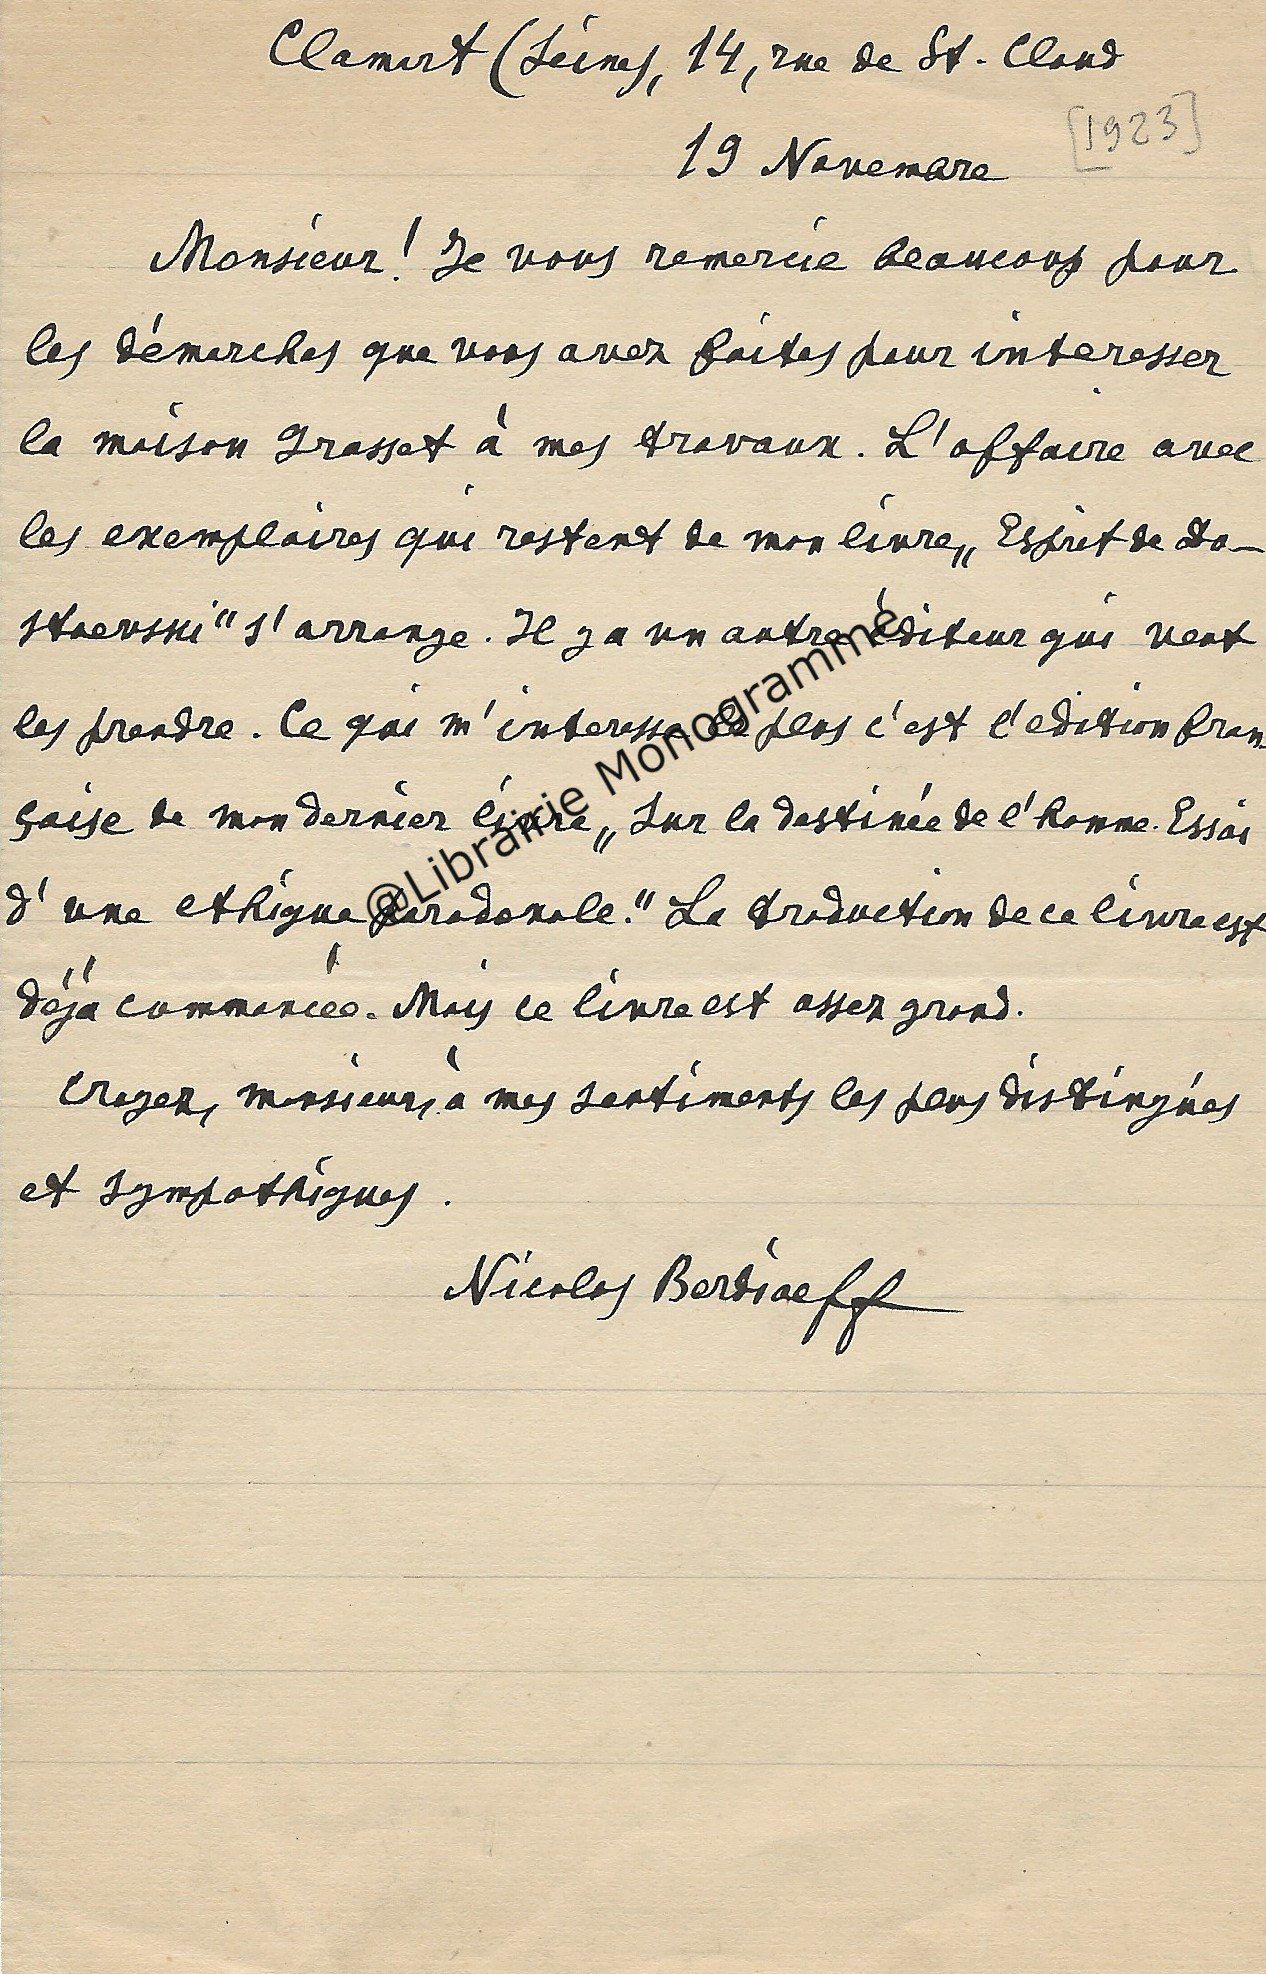 Clamart (Seine), 14, rue de St. Cloud
[1923]
19 Novembre
Monsieur! Je vous remercie beaucoup pour
les démarches que vous avez faites pour interesser
la maison Grasset à mes travaux. L'affaire avec
les exemplaires qui restent de mon livre „Esprit de Do-
stoevski" s'arrange. Il y a un autre éditeur qui veut
les prendre. Ce qui m'interesse le plus c'est l'edition fran-
çaise de mon dernier livre „Sur la destinée de l'homme. Essai
d'une ethique paradoxale." La traduction de ce livre est
déjà commencée. Mais ce livre est assez grand.
Croyez, monsieur, à mes sentiments les plus distingués
et sympathiques.
Nicolas Berdiaeff
@Librairie Monogramme